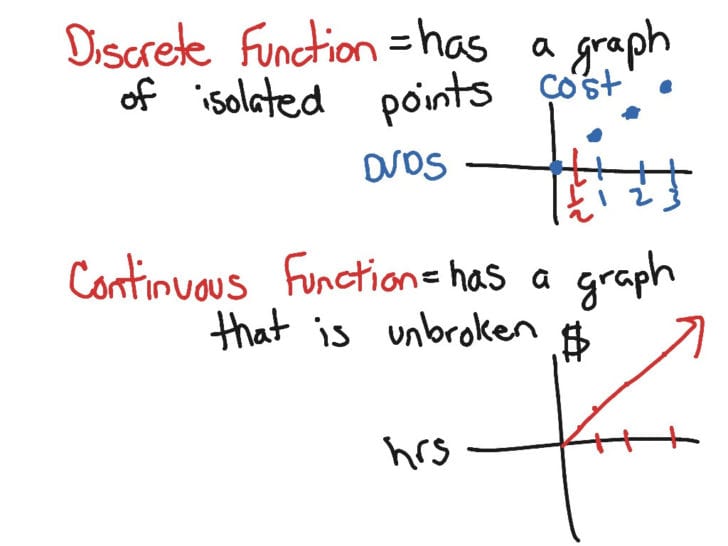 Discrete Function = has a graph
of isolated points
cost
DVDS
1/2 1 2 3
Continuous Function = has a graph
that is unbroken
$
hrs